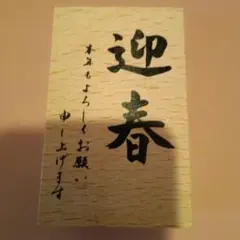 迎春
本年もよろしくお願い
申し上げます